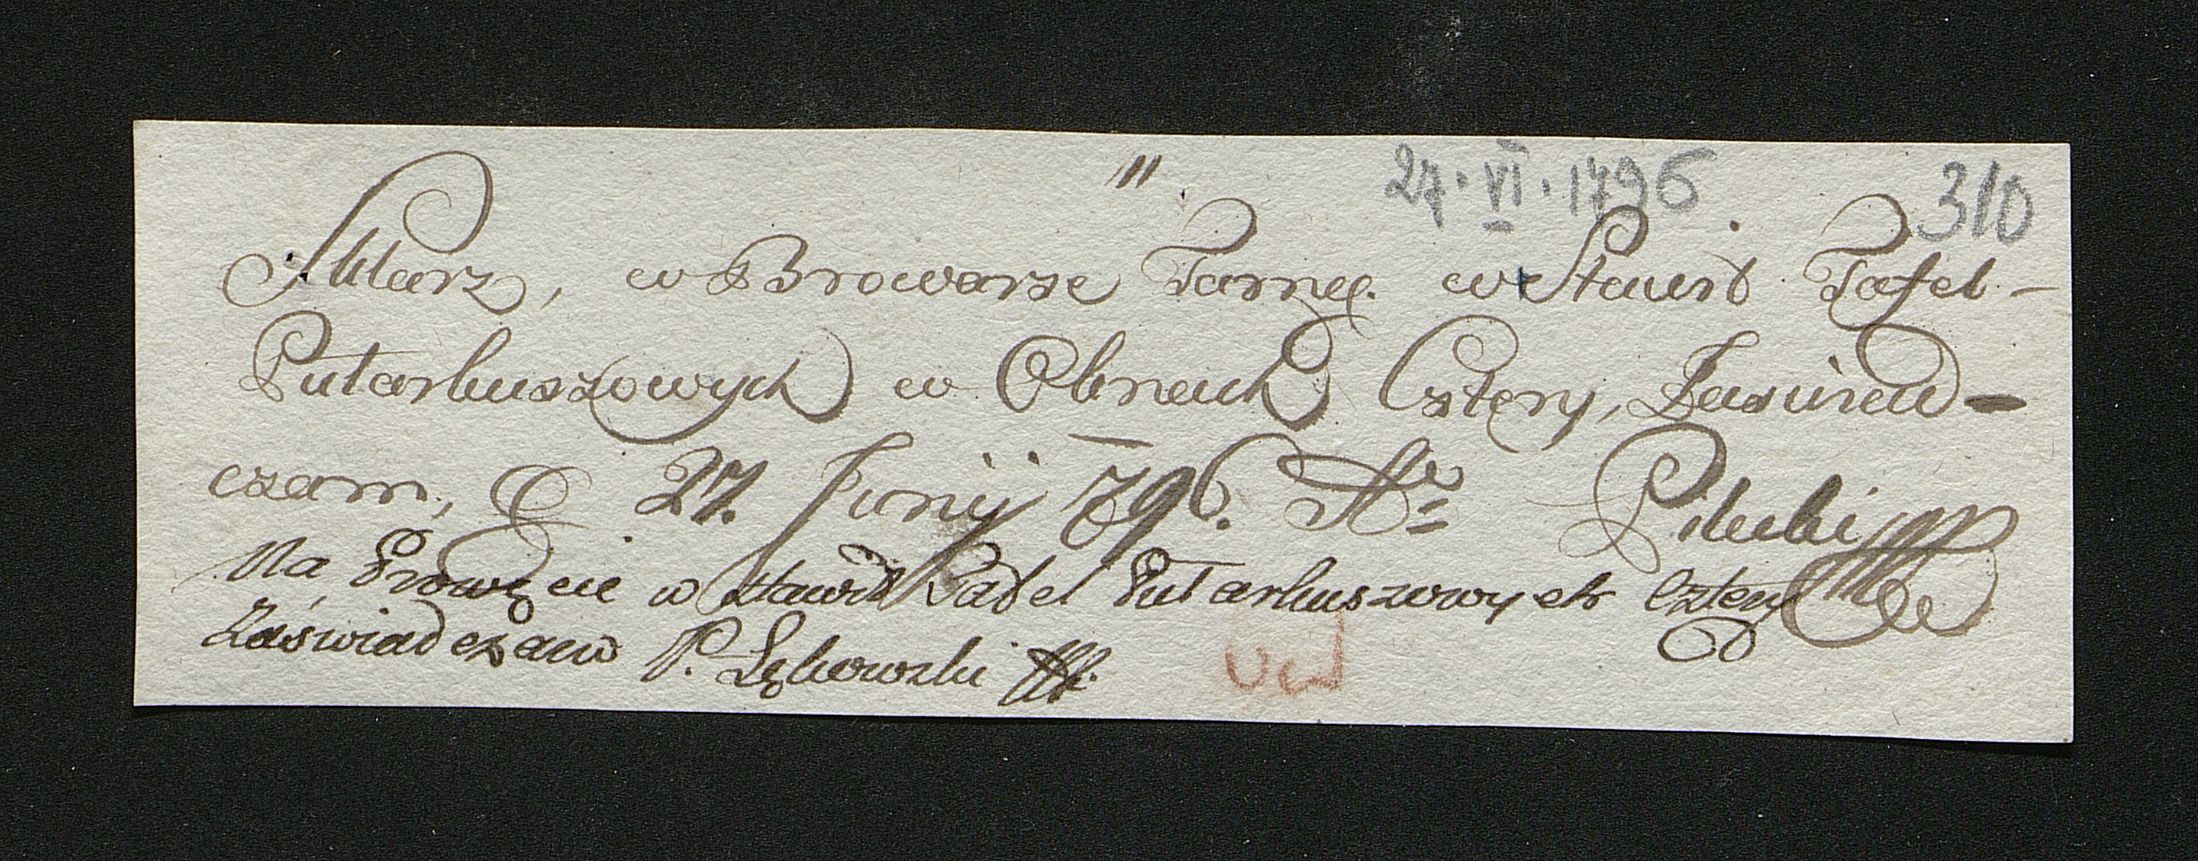 27·VI·1796 310
Szklarz, w Browarze Tarnog. wstawił Tafel
Pułarkuszowych w Oknach Cztery, Zaświad=
czam, D 27. Junij 796. Aº Pilecki
Na Prowęcie wstawił Tafel Pułarkuszowych Cztery
Zaświadczam P. Łękowski